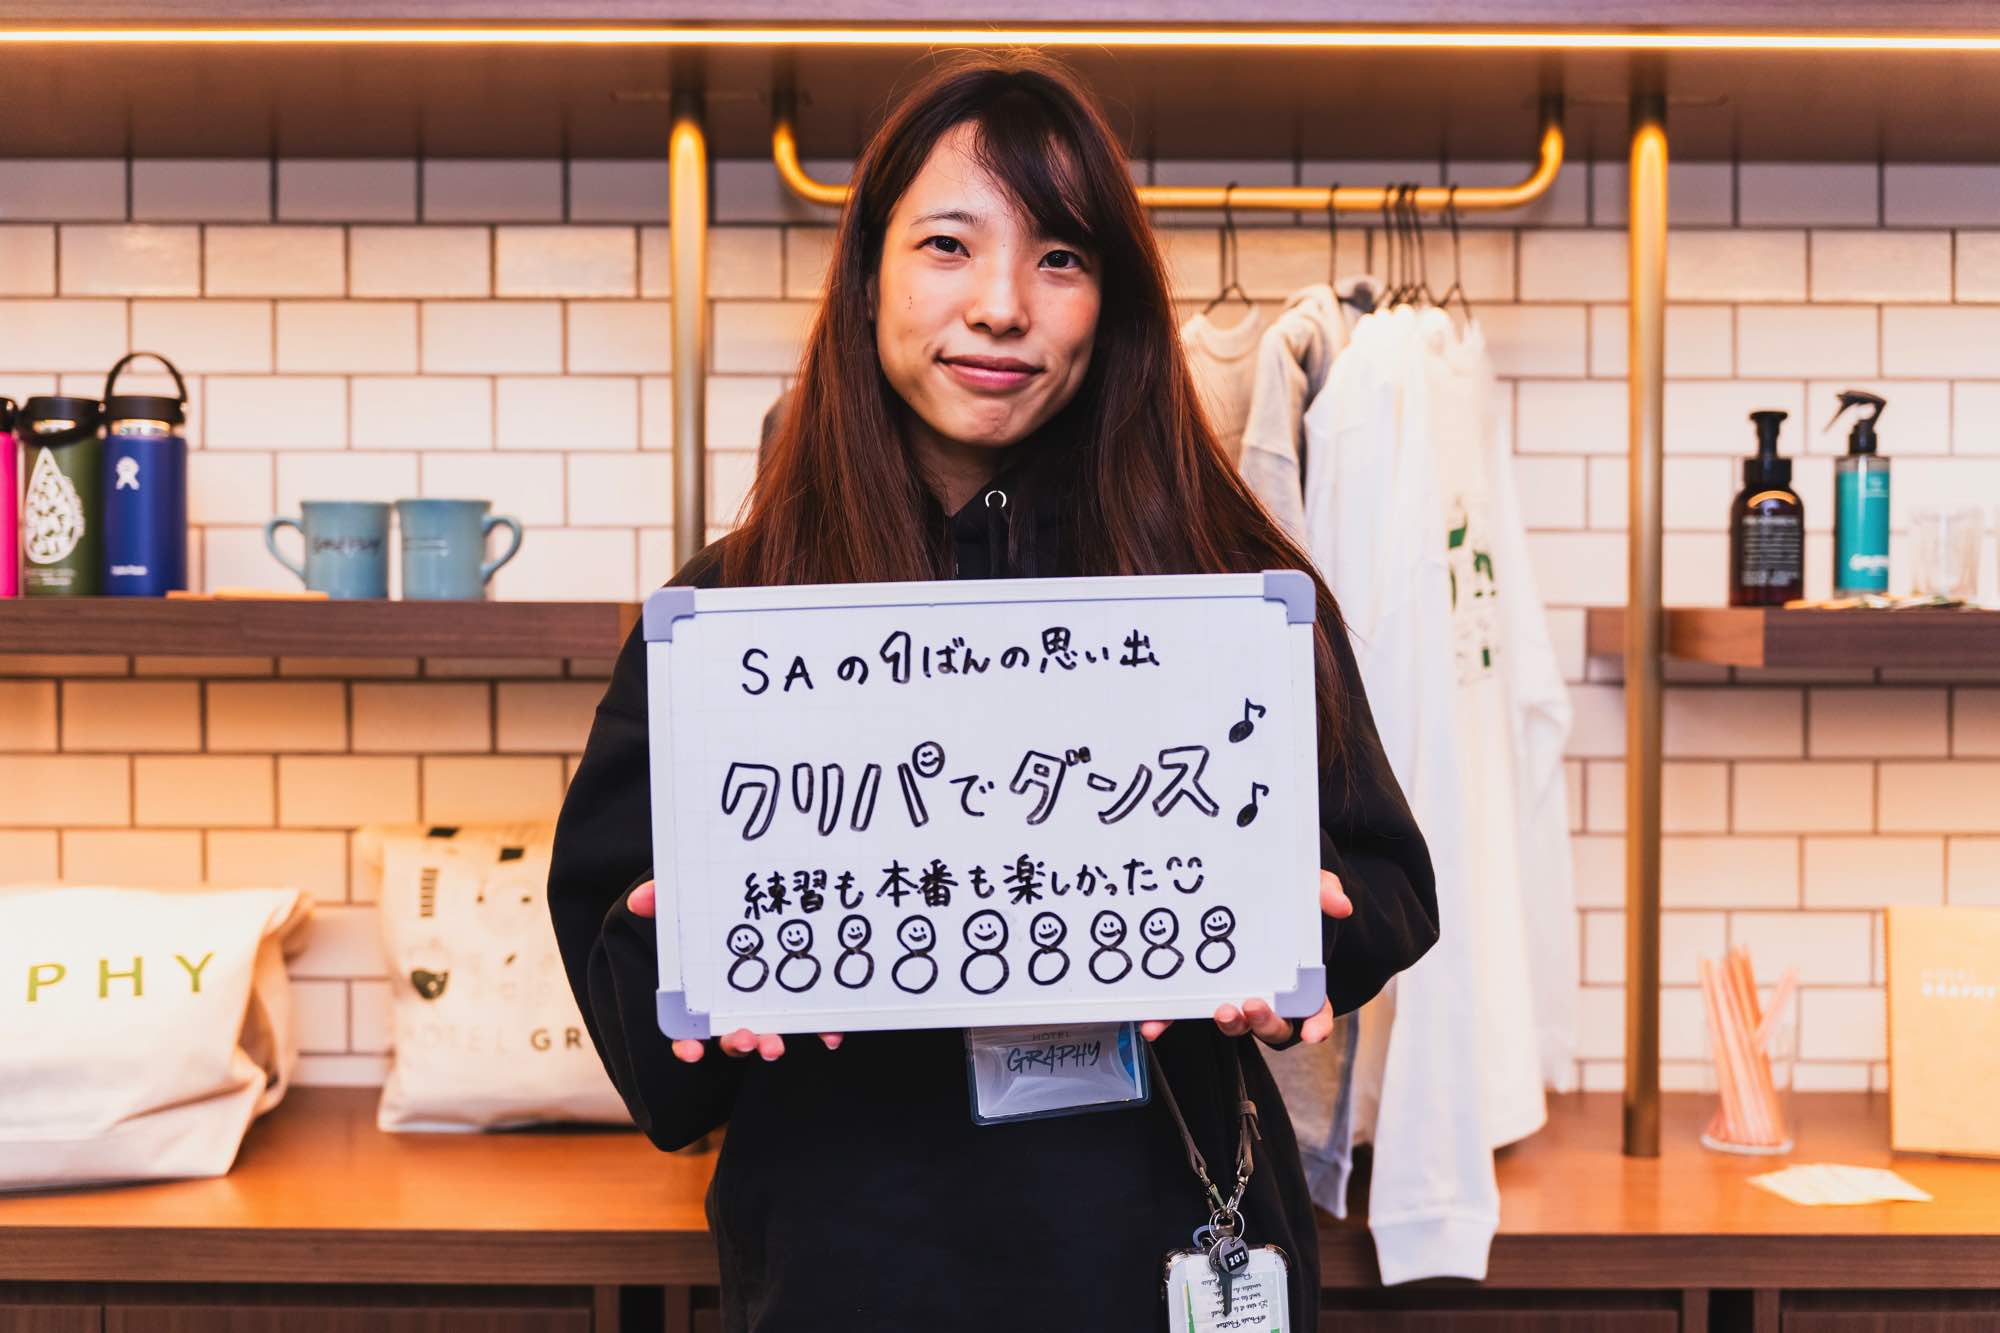 SAの1ばんの思い出
クリパでダンス
練習も本番も楽しかった
PHY
HOTEL GR
HOTEL
GRAPHY
207
Hydro Flask